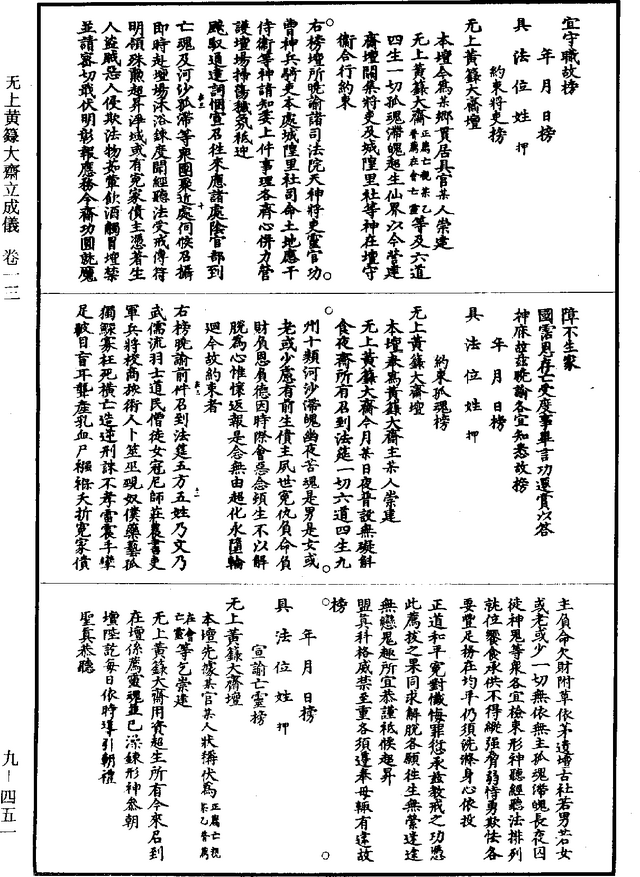 宜守職故榜
年　月　日榜
具　法　位　姓　押
約束將吏榜
无上黃籙大齋壇
本壇今為某鄉貫居具官某人崇建
无上黃籙大齋正薦亡親某乙普薦在會亡靈等及六道
四生一切孤魂滯魄超生仙界以今營建
齋壇關集將吏及城隍里社等神在壇守
衛合行約束
右榜壇所曉諭諸司法院天神將吏靈官功
曹神兵騎吏本處城隍里社司命土地應干
侍衛等神請知委上件事理各齊心併力營
護壇場掃蕩穢氛袛迎
飈馭通達詞悃宣召往來應諸處陰官部到
亡魂及河沙孤滯等衆團聚近處伺候召攝
即時赴壇場沐浴鍊度聞經聽法受戒傳符
明領殊勳超昇淨域或有冤家債主憑著生
人盜賊惡人侵欺法物茹葷飲酒觸冒壇禁
並請密切戢伏明彰報應務令齋功圓就魔
障不生家
國霑恩存亡受度事畢言功遷賞以答
神庥故茲曉諭各宜知悉故榜
年　月　日榜
具　法　位　姓　押
約束孤魂榜
无上黃籙大齋壇
本壇奉為黃籙大齋主某人崇建
无上黃籙大齋今月某日夜普設無礙斛
食夜齋所有召到法筵一切六道四生九
州十類河沙滯魄幽夜苦魂是男是女或
老或少慮有前生債主夙世冤仇負命負
財負恩負德因時際會惡念頓生不以解
脫為心惟懷返報是念無由超化永墮輪
迴今故約束者
右榜曉諭前件召到法筵五方五姓乃文乃
武儒流羽士道民僧徒女冠尼師莊農書吏
軍兵將校商旅術人卜筮巫覡奴僕藥藝孤
獨鰥寡枉死橫亡造逆刑誅不孝雷震手攣
足皸目盲耳聾產乳血尸襁褓夭折冤家債
主負命欠財附草依茅遺壇古社若男若女
或老或少一切無依無主孤魂滯魄長夜囚
徒神鬼等衆各宜檢束形神聽經聽法排列
就位饗食承供不得縱強脅弱恃勇欺怯各
要豐足務在均平仍須洗滌身心依投
正道和平冤對懺悔罪愆承茲教戒之功憑
此薦拔之果同求解脫各願往生無縈迷途
無戀鬼趣所宜恭謹祗候超昇
盟真科格威禁至重各須遵奉毋輒有違故
榜
年　月　日榜
具　法　位　姓　押
宣諭亡靈榜
无上黃籙大齋壇
本壇先據某官某人狀稱伏為正薦亡親某乙普薦
在會亡靈等乞崇建
无上黃籙大齋用資超生所有今來召到
在壇係薦靈魂並已深鍊形神參朝
壇陛訖每日依時導引朝禮
聖真恭聽
无上黃籙大齋立成儀　卷一三
九－四五一